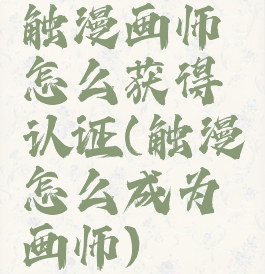 触漫画师
怎么获得
认证(触漫
怎么成为
画师)